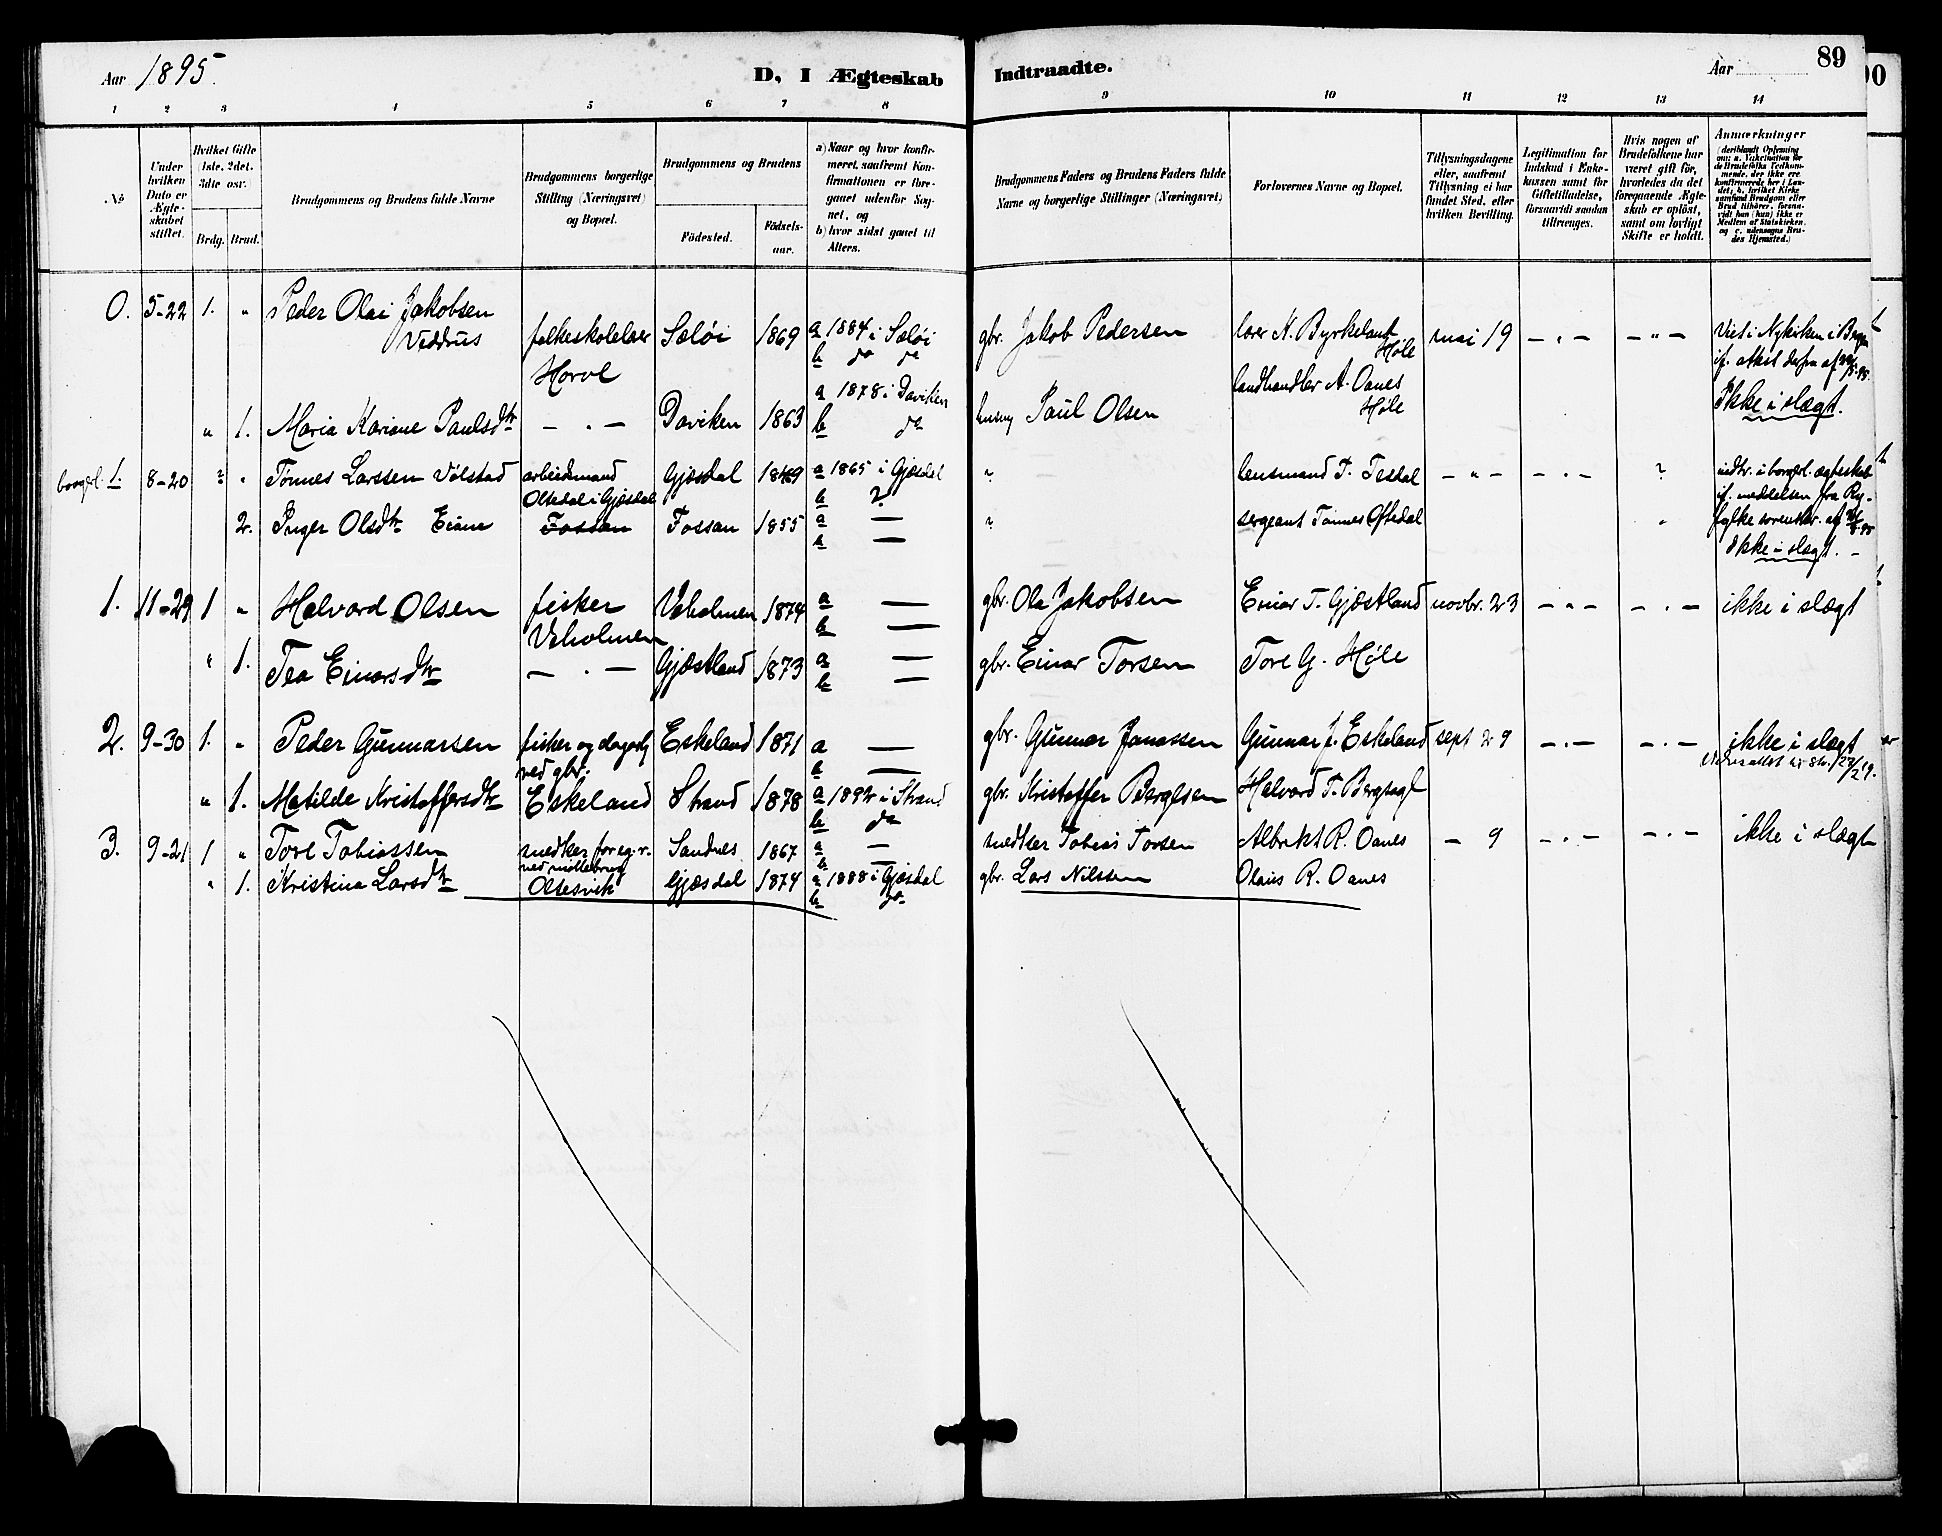 Aar 1895.
D, I Ægteskab Indtraadte.
Aar 89
1 2 3 4 5 6 7 8 9 10 11 12 13 14
No
Under hvilken Dato er Ægteskabet stiftet.
Hvilket Gifte (1ste, 2det, 3die osv.
Brdg. Brud.
Brudgommens og Brudens fulde Navne
Brudgommens borgerlige Stilling (Næringsvei) og Bopæl.
Brudgommens og Brudens
Fødested.
Fødselsaar.
a) Naar og hvor konfirmeret, saafremt Konfirmationen er foregaaet udenfor Sognet, og
b) hvor sidst gaaet til Alters.
Brudgommens Faders og Brudens Faders fulde Navne og borgerlige Stillinger (Næringsvei)
Forlovernes Navne og Bopæl.
Tillysningsdagene eller, saafremt Tillysning ei har fundet Sted, efter hvilken Bevilling.
Legitimation for Indskud i Enkekassen samt for Giftetilladelse, forsaavidt saadan tiltrænges.
Hvis nogen af Brudefolkene har været gift før, hvorledes da det foregaaende Ægteskab er opløst, samt om lovligt Skifte er holdt.
Anmærkninger
0. 5-22 1. " Peder Olai Jakobsen
folkeskolelær Sæløi 1869 a 1884 i Sæløi gbr. Jakob Pedersen lær N. Byrkeland Høle mai 19 - " - - " - Viet i Nykirken i Bergen
b do do
a 1878 i Daviken landhandler A. Oanes Høle
" 1. Maria Kariane Paulsdtr - " - Daviken 1863 b do Paul Olsen Ikke i slægt.
borgerl. 1. 8-20 ? " Tønnes Larssen Vølstad arbeidsmand Gjæsdal a 1865 i Gjæsdal ? lensmand T. Tesdal - " - - " - ? indtr. i borgerl. ægteskab
Oltedal i Gjæsdal b ? if. meddelelsen fra Ry-
2. Inger Olsdtr Eiane Fossan Fossan 1855 a — ? sergeant Tønnes Oftedal "
b — Ikke i slægt. -
1. 11-29 1 " Halvard Olsen fisker Veholmen 1874 a — gbr. Ola Jakobsen Einar T. Gjæstland novbr. 23 - " - - " - ikke i slægt
Veholmen b —
" 1. Tea Einarsdtr - " - Gjæstland 1873 a — gbr. Einar Torsen Tore G. Høle
b —
2. 9-30 1. " Peder Gunnarsen fisker og dagarb Eskeland 1871 a — gbr. Gunnar Jonassen Gunnar J. Eskeland sept 29 - " - - " - ikke i slægt
ved gbr. b —
" 1. Matilde Kristoffersdtr Eskeland Strand 1878 a 1892 i Strand gbr. Kristoffer Bergesen Halvard T. Bergsagel
b do
3. 9-21 1 " Tore Tobiassen snedker for eg. r. Sandnes 1867 a — snedker Tobias Torsen Albrekt R. Oanes — 9 - " - - " - ikke i slægt
ved møllebrug b —
" 1. Kristina Larsdtr Oltesvik Gjæsdal 1874 a 1888 i Gjæsdal gbr. Lars Nilssen Olaus R. Oanes
b do